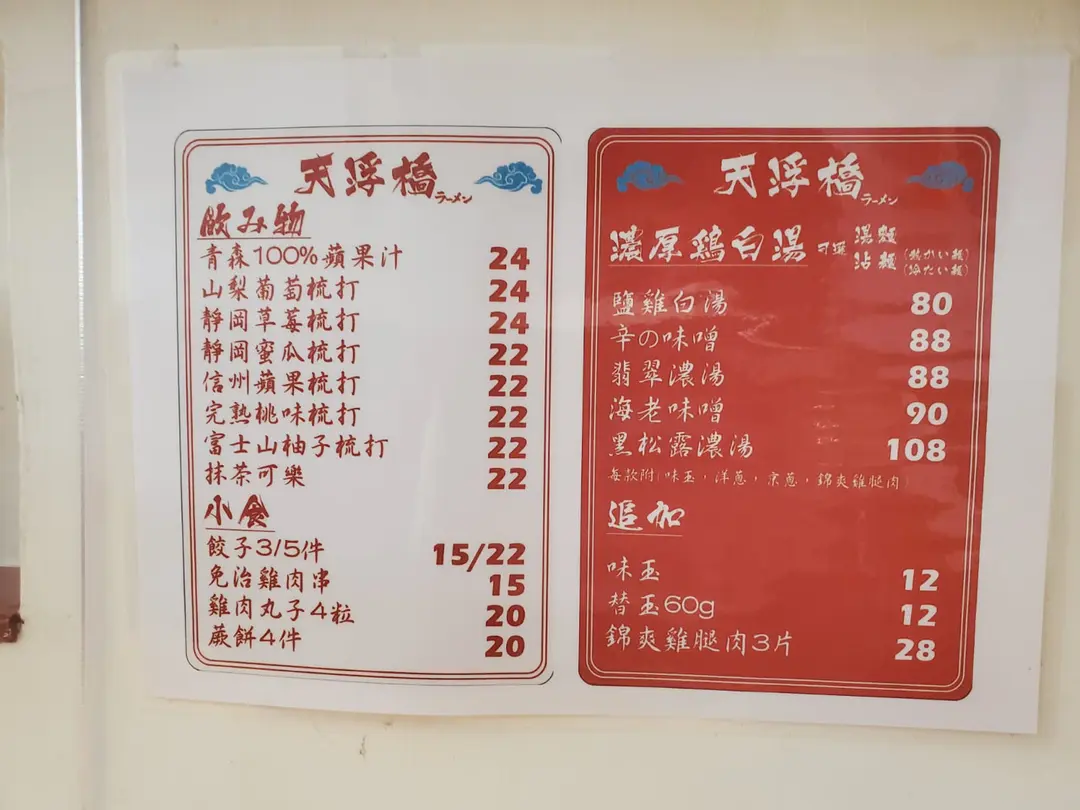 天浮橋
ラーメン
飲み物
青森100%蘋果汁 24
山梨葡萄梳打 24
靜岡草莓梳打 24
靜岡蜜瓜梳打 22
信州蘋果梳打 22
完熟桃味梳打 22
富士山柚子梳打 22
抹茶可樂 22
小食
餃子3/5件 15/22
免治雞肉串 15
雞肉丸子4粒 20
蕨餅4件 20
天浮橋
ラーメン
濃厚鶏白湯 可選 湯麵
沾麵
鹽雞白湯 80
辛の味噌 88
翡翠濃湯 88
海老味噌 90
黑松露濃湯 108
每款附：味玉，洋蔥，京蔥，錦爽雞腿肉
追加
味玉 12
替玉60g 12
錦爽雞腿肉3片 28